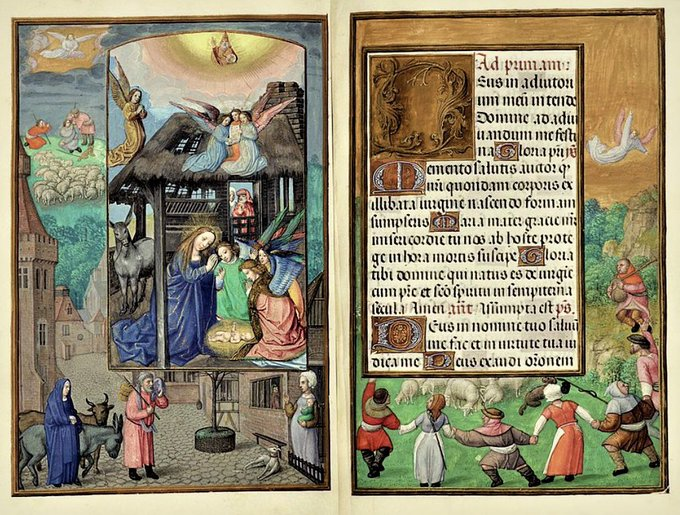 Ad primam
Deus in adiutori
um meū intende
Domine ad adiu
uandum me festi
na Gloria pr̄i
Memento salutis auctor q̄
quondam corporis ex
illibata uirgine nascendo formam
sumpseris Maria mater gracie m̄r
misericordie tu nos ab hoste prote
ge in hora mortis suscipe Gloria
tibi domine qui natus es de uirgīe
cum pr̄e et sc̄o spiritu in sempiterna
secula Amen an̄t Assumpta est ps̄
Deus in nomine tuo saluū
me fac et in uirtute tua iu
dica me Deus exaudi oro̅nem